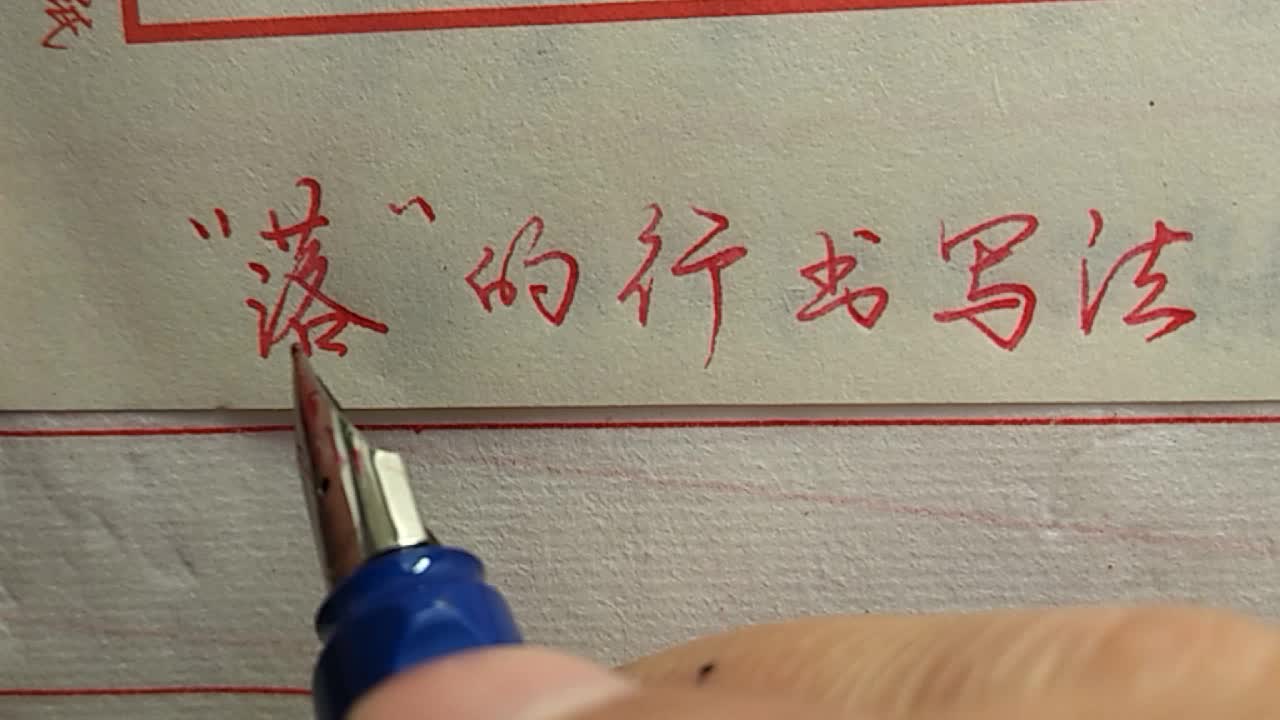 “落”的行书写法